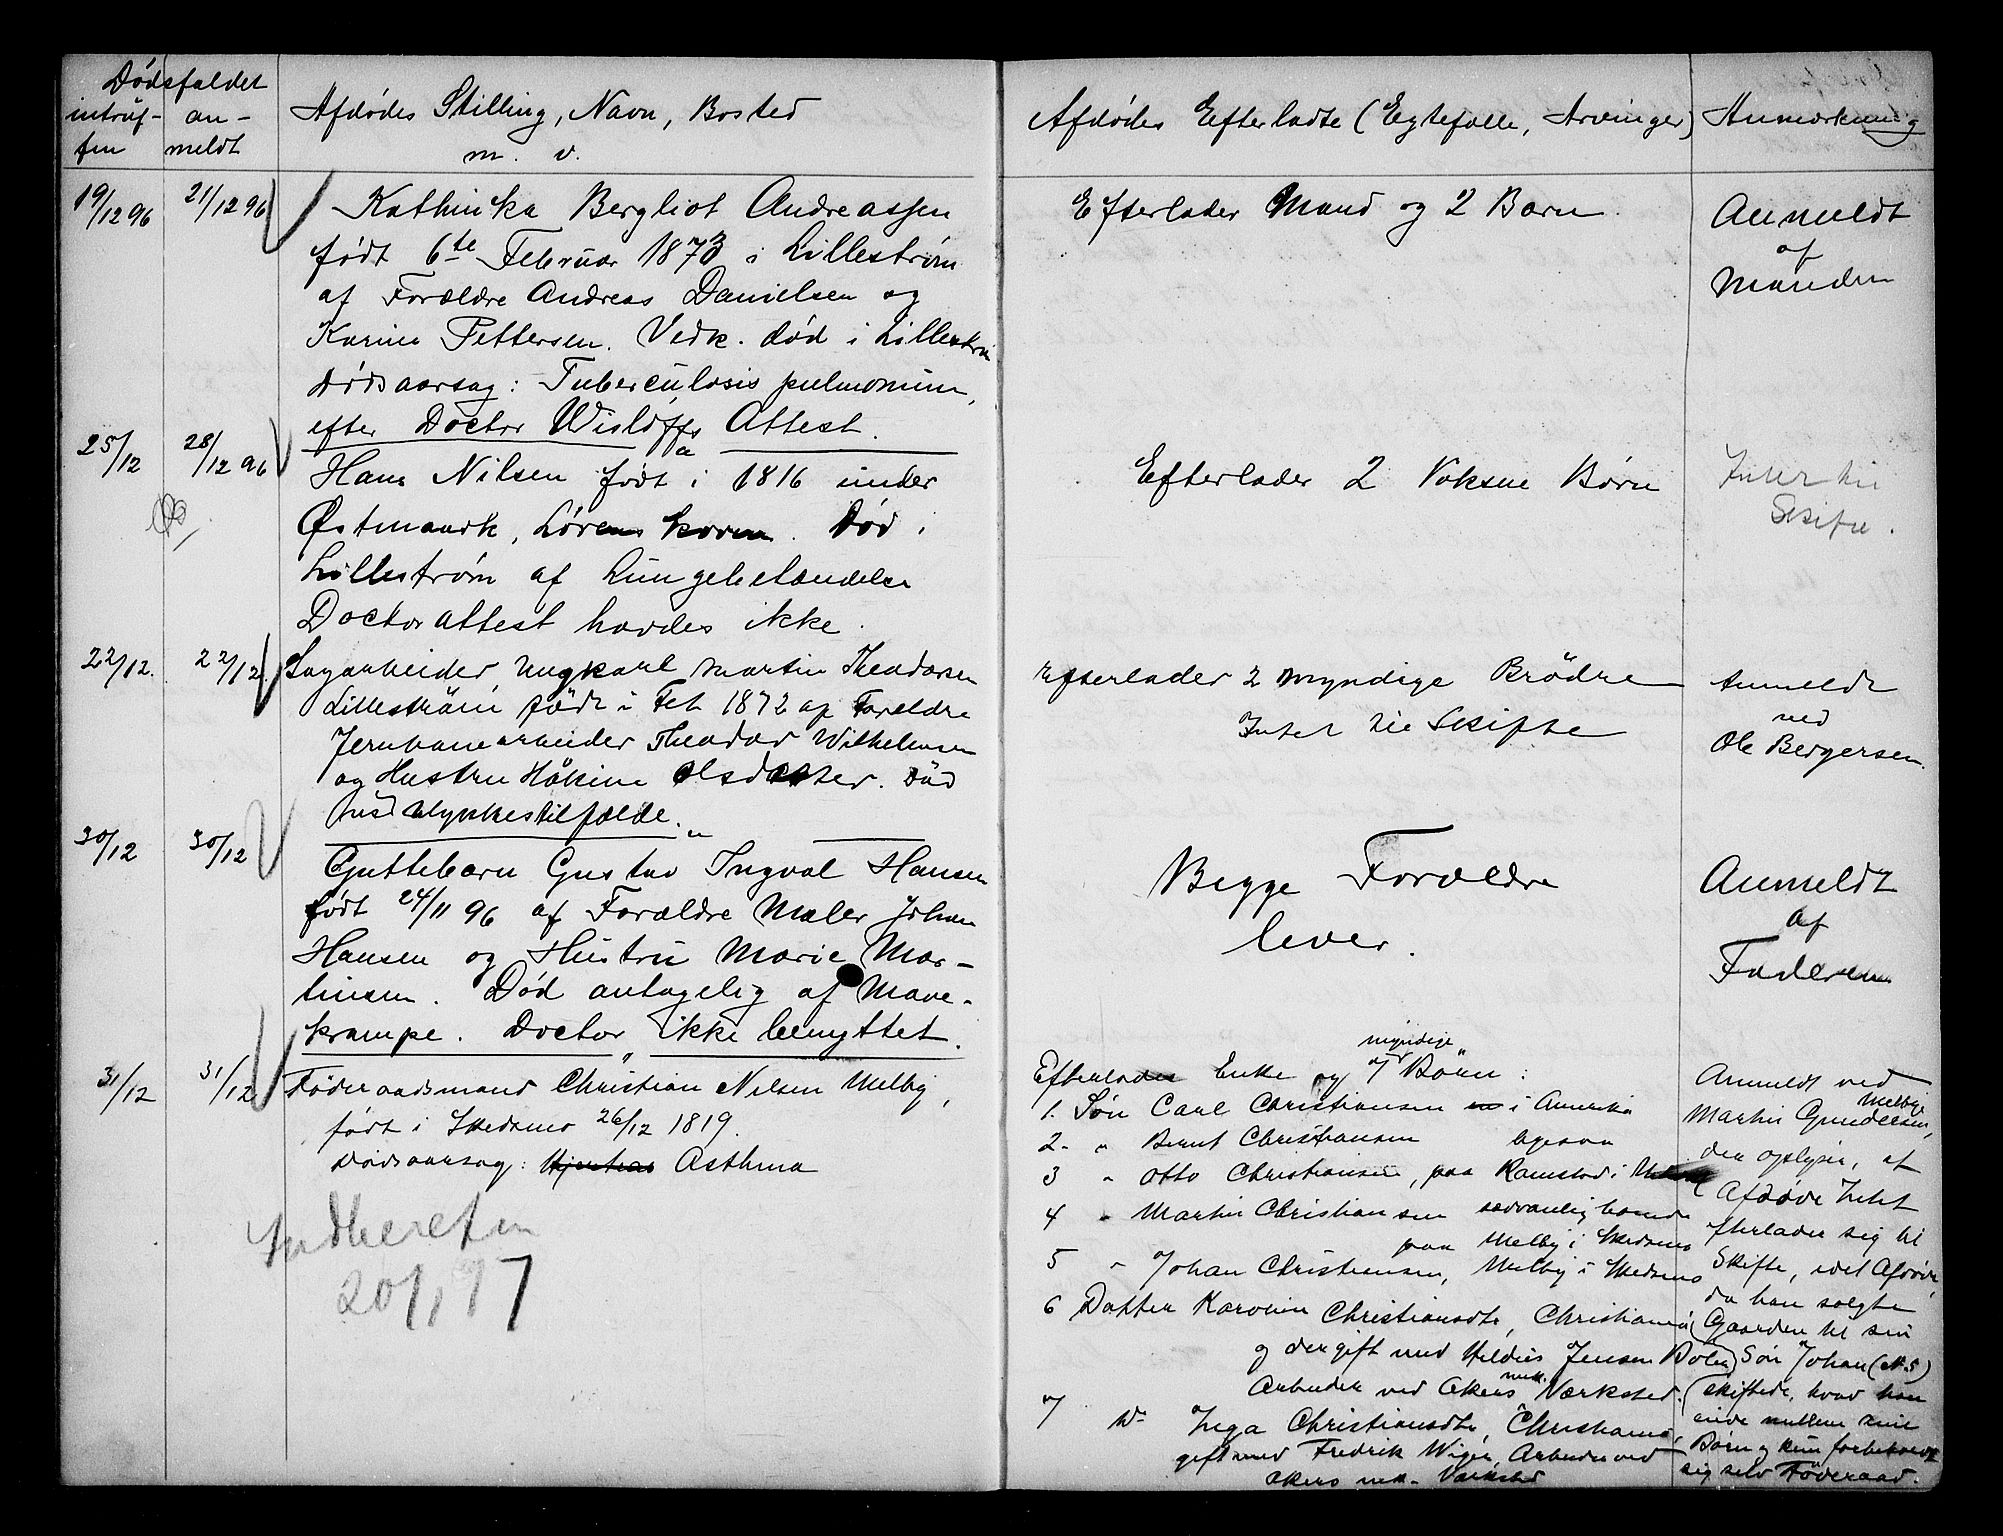 Dødsfaldet
intruf- an- Afdødes Stilling, Navn, Bosted
fen meldt m. v.
Afdødes Efterladte (Egtefælle, Arvinger) Anmærkning
19/12 96 21/12 96 Kathinka Bergliot Andreassen
født 6te Februar 1873 i Lillestrøm
af Forældre Andreas Danielsen og
Karine Pettersen. Vedk. død i Lillestrøm
Dødsaarsag: Tuberculosis pulmonum,
efter Doctor Wisløffs Attest.
Efterlader Mand og 2 Børn.
Anmeldt
af
Manden
25/12 28/12 96 Hans Nilsen født i 1816 under
Østmaurk, Lørenskoven. Død i
Lillestrøm af Lungebetændelse
Doctorattest havdes ikke.
Efterlader 2 Voksne Børn
Intet til
Skifte.
22/12. 22/12. Sagarbeider, Ungkarl Martin Theodorsen
Lilleström, född i Fet 1872 af Foreldre
Jernbanearbeider Theodor Wilhelmsen
og Hustru Håkine Olsdatter. Död
ved Ulykkestilfælde.
Efterlader 2 myndige Brödre
Intet til Skifte
Anmeldt
ved
Ole Bergersen.
30/12 30/12 Guttebarn Gustav Ingval Hansen
født 24/11 96 af Forældre Maler Johan
Hansen og Hustru Marie Mar-
tinsen. Død antagelig af Mave-
krampe. Doctor ikke benyttet.
Begge Forældre
lever.
Anmeldt
af
Faderen
31/12 31/12 Föderaadsmand Christian Nilsen Melby,
født i Skedsmo 26/12 1819.
Dødsaarsag: Asthma
Indberetn
20/1 97
myndige
Efterlader Enke og 7 Börn:
1. Sön Carl Christiansen i Amerika
2. " Bernt Christiansen ligesaa
3 " Otto Christiansen, paa Ramstad i
4 " Martin Christiansen sedvanlig
paa Melby i Skedsmo
5 " Johan Christiansen, Melby i Skedsmo
6 Datter Karoline Christiansdtr, Christiania,
og der gift med Jensen
Arbeider ved Akers mek. Værksted.
7 Do Inga Christiansdtr, Christiania,
gift med Fredrik Wiger, Arbeider ved
Akers mek. Værksted
Anmeldt ved
Martin Gundersen Melby,
der oplyser, at
Afdøde Intet
efterlader sig til
Skifte, idet Afdøde,
da han solgte
Gaarden til sin
Søn Johan (N. 5)
skiftede, hvad han
eiede mellem sine
Børn og kun forbeholdt
sig selv Föderaad.